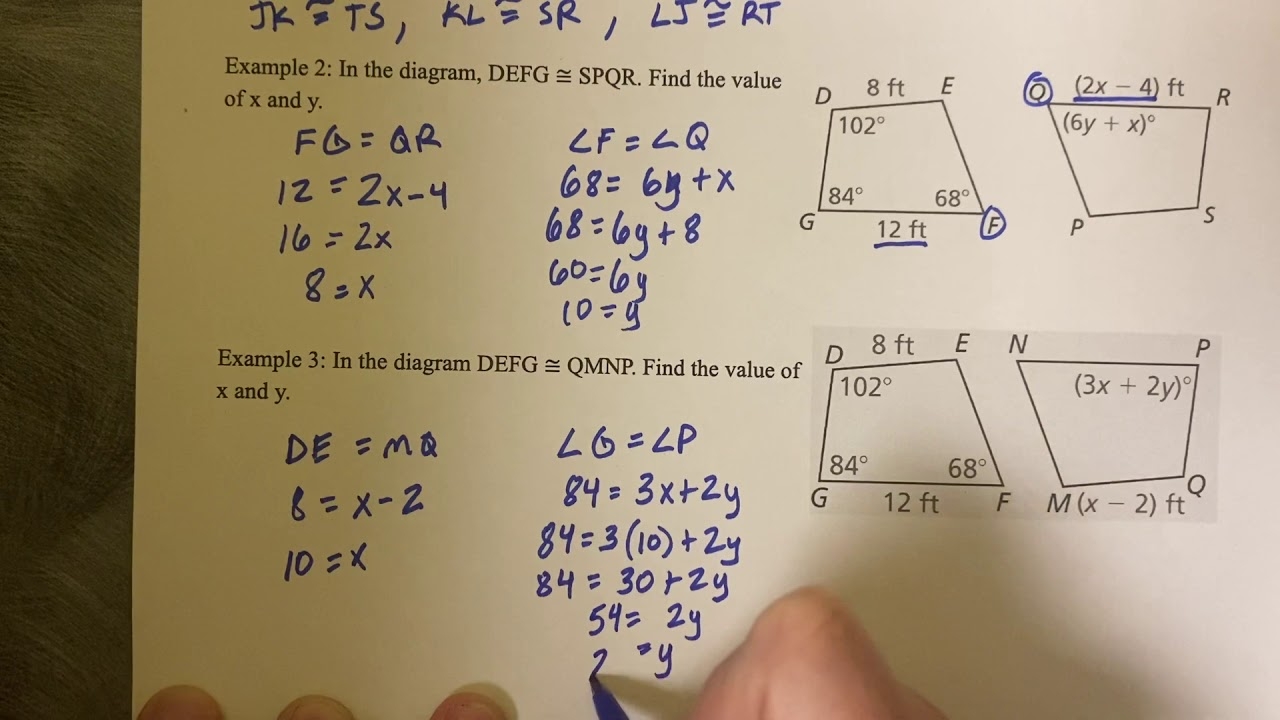 JK ≅ TS, KL ≅ SR, LJ ≅ RT
Example 2: In the diagram, DEFG ≅ SPQR. Find the value
of x and y.
FG = QR
12 = 2x-4
16 = 2x
8 = x
∠F = ∠Q
68 = 6y + x
68 = 6y + 8
60 = 6y
10 = y
D 8 ft E
102°
84° 68°
G 12 ft F
Q (2x − 4) ft R
(6y + x)°
P S
Example 3: In the diagram DEFG ≅ QMNP. Find the value of
x and y.
DE = MQ
8 = x-2
10 = x
∠G = ∠P
84 = 3x+2y
84 = 3(10) + 2y
84 = 30 + 2y
54 = 2y
2 = y
D 8 ft E
102°
84° 68°
G 12 ft F
N P
(3x + 2y)°
M (x − 2) ft Q